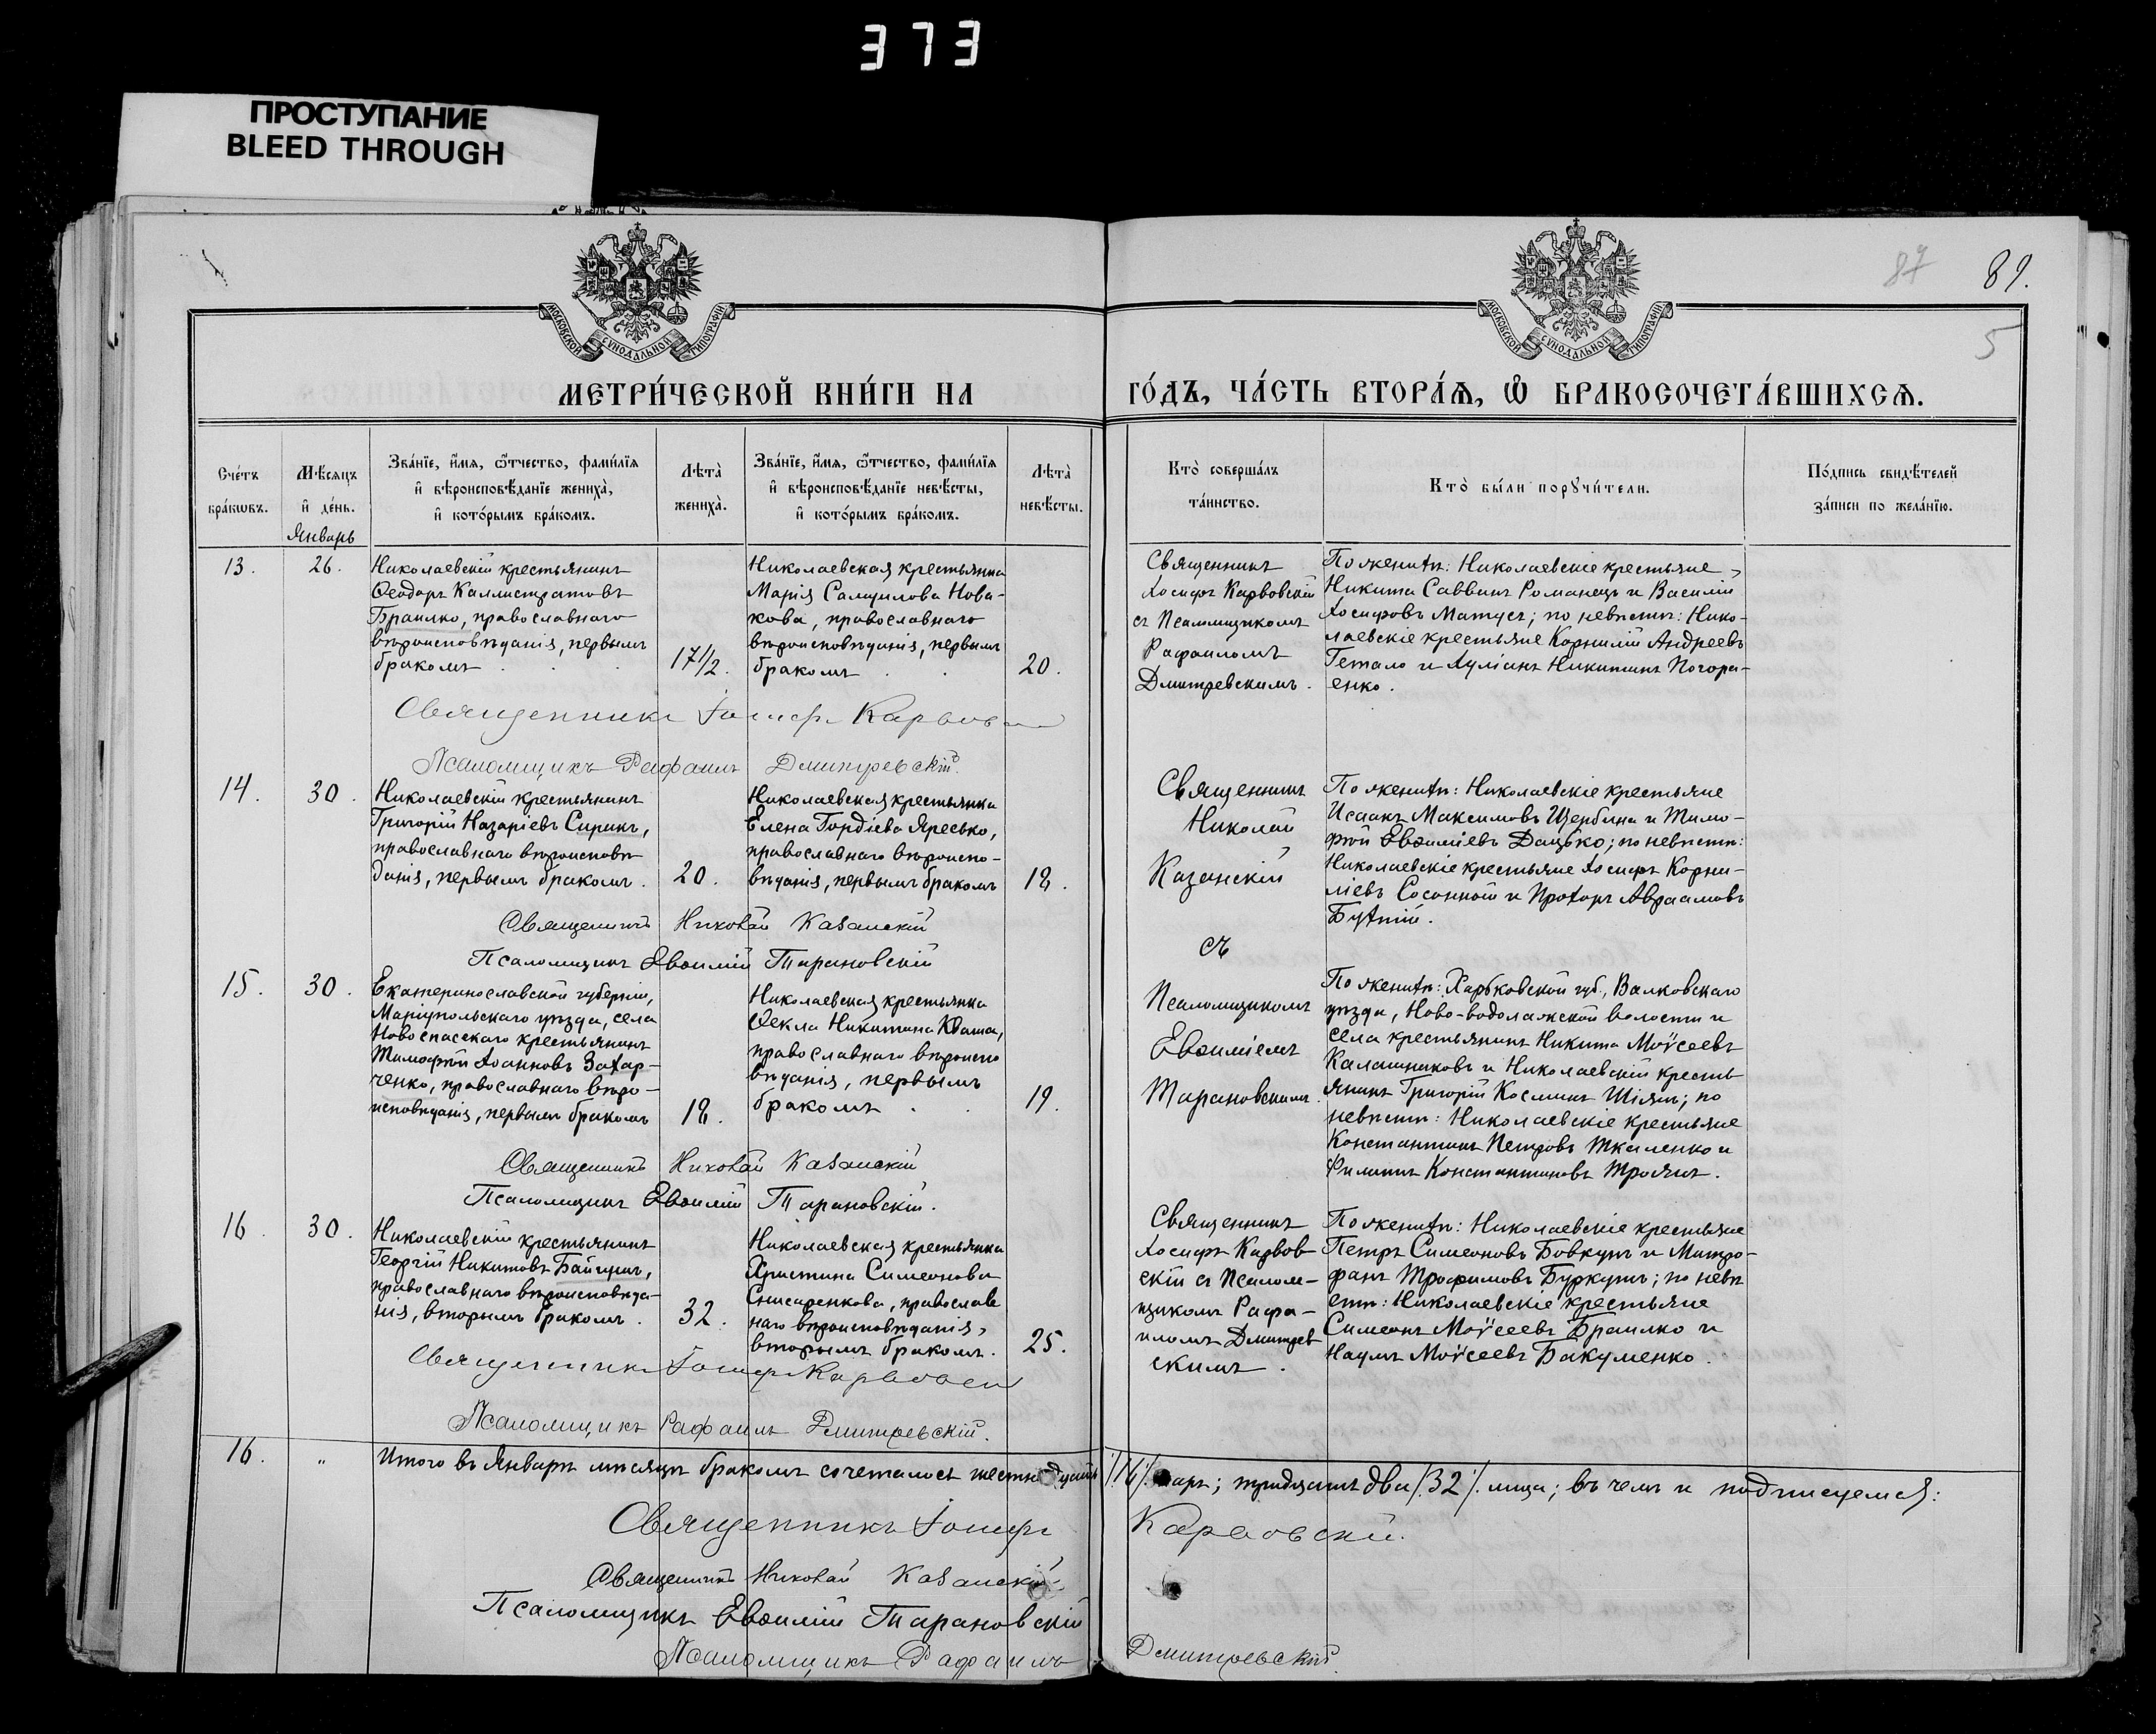 373
ПРОСТУПАНИЕ
BLEED THROUGH
МОСКОВСКОЙ СѴНОДАЛЬНОЙ ТИПОГРАФІИ
МОСКОВСКОЙ СѴНОДАЛЬНОЙ ТИПОГРАФІИ
87 89.
5
МЕТРИ́ЧЕСКОЙ КНИ́ГИ НА ГО́ДЪ, ЧА́СТЬ ВТОРА́Ѧ, Ѡ҆ БРАКОСОЧЕТА́ВШИХСѦ.
Сче́тъ
бра́кѡвъ.
Мѣ́сѧцъ
и҆ де́нь.
Январь
Зва́нїе, и҆́мѧ, ѻ҆́тчество, фами́лїѧ
и҆ вѣроисповѣ́данїе жениха̀,
и҆ кото́рымъ бра́комъ.
Лѣта̀
жениха̀.
Зва́нїе, и҆́мѧ, ѻ҆́тчество, фами́лїѧ
и҆ вѣроисповѣ́данїе невѣ́сты,
и҆ кото́рымъ бра́комъ.
Лѣта̀
невѣ́сты.
Кто̀ соверша́лъ
та́инство.
Кто̀ бы́ли порꙋчи́тели.
По́дпись свидѣ́телей
за́писи по жела́нїю.
13.
26.
Николаевскій крестьянинъ
Ѳеодоръ Каллистратовъ
Браилко, православнаго
вѣроисповѣданія, первымъ
бракомъ
17½.
Николаевская крестьянка
Марія Самуилова Нова-
кова, православнаго
вѣроисповѣданія, первымъ
бракомъ
20.
Священникъ
Іосифъ Карвовскій
съ Псаломщикомъ
Рафаиломъ
Дмитревскимъ.
По женихѣ: Николаевскіе крестьяне,
Никита Саввинъ Романецъ и Василій
Іосифовъ Матусъ; по невѣстѣ: Нико-
лаевскіе крестьяне Корнилій Андреевъ
Гетало и Іуліанъ Никитинъ Погорѣ-
енко.
Священникъ Іосифъ Карвовскій
Псаломщикъ Рафаилъ Дмитревскій.
14.
30.
Николаевскій крестьянинъ
Григорій Назаріевъ Сирикъ,
православнаго вѣроисповѣ-
данія, первымъ бракомъ.
20.
Николаевская крестьянка
Елена Гордіева Яресько,
православнаго вѣроиспо-
вѣданія, первымъ бракомъ
18.
Священникъ
Николай
Казанскій
съ
Псаломщикомъ
Евѳиміемъ
Тарановскимъ.
По женихѣ: Николаевскіе крестьяне
Исаакъ Максимовъ Щербина и Тимо-
фей Евѳиміевъ Дацько; по невѣстѣ:
Николаевскіе крестьяне Іосифъ Корни-
ліевъ Сосонной и Прохоръ Авраамовъ
Бухтій.
Священникъ Николай Казанскій
Псаломщикъ Евѳимій Тарановскій
15.
30.
Екатеринославской губерніи,
Маріупольскаго уѣзда, села
Новоспасскаго крестьянинъ
Тимофей Іоанновъ Захар-
ченко, православнаго вѣро-
исповѣданія, первымъ бракомъ
18.
Николаевская крестьянка
Ѳекла Никитина Кваша,
православнаго вѣроиспо
вѣданія, первымъ
бракомъ
19.
По женихѣ: Харьковской губ., Валковскаго
уѣзда, Ново-водолажской волости и
села крестьянинъ Никита Моѵсеевъ
Калашниковъ и Николаевскій кресть
янинъ Григорій Косминъ Шіянъ; по
невѣстѣ: Николаевскіе крестьяне
Константинъ Петровъ Ткаленко и
Филиппъ Константиновъ Троянъ.
Священникъ Николай Казанскій
Псаломщикъ Евѳимій Тарановскій.
16.
30.
Николаевскій крестьянинъ
Георгій Никитовъ Байчукъ,
православнаго вѣроисповѣда-
нія, вторымъ бракомъ.
32.
Николаевская крестьянка
Христина Симеонова
Снисаренкова, православ
наго вѣроисповѣданія,
вторымъ бракомъ.
25.
Священникъ
Іосифъ Карвов-
скій съ Псалом-
щикомъ Рафа-
иломъ Дмитрев
скимъ.
По женихѣ: Николаевскіе крестьяне
Петръ Симеоновъ Бовкунъ и Митро-
фанъ Трофимовъ Буркутъ; по невѣ
стѣ: Николаевскіе крестьяне
Симеонъ Моѵсеевъ Браилко и
Наумъ Моѵсеевъ Бакуменко.
Священникъ Іосифъ Карвовскій
Псаломщикъ Рафаилъ Дмитревскій.
16. " Итого въ Январѣ мѣсяцѣ бракомъ сочеталось шестнадцать /16/. паръ; тридцать два /.32/. лица; въ чемъ и подписуемся:
Священникъ Іосифъ Карвовскій.
Священникъ Николай Казанскій
Псаломщикъ Евѳимій Тарановскій
Псаломщикъ Рафаилъ Дмитревскій.